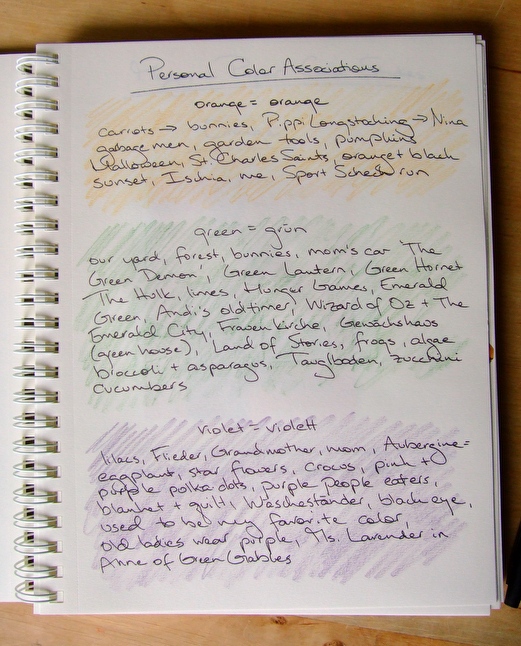 Personal Color Associations
orange = orange
carrots → bunnies, Pippi Longstocking → Nina
garbage men, garden tools, pumpkins
Halloween, St. Charles Saints, orange + black
sunset, Ischia, me, Sport Scheck run
green = grün
our yard, forest, bunnies, mom's car "The
Green Demon", Green Lantern, Green Hornet
The Hulk, limes, Hunger Games, Emerald
Green, Andi's oldtimer, Wizard of Oz + The
Emerald City, Frauenkirche, Gewächshaus
(green house), Land of Stories, frogs, algae
broccoli + asparagus, zucchini
cucumbers
violet = violett
lilacs, Flieder, Grandmother, mom, Aubergine =
eggplant, star flowers, crocus, pink +
purple polka dots, purple people eaters,
blanket + quilt, Wäscheständer, black eye,
used to be my favorite color,
old ladies wear purple, Ms. Lavender in
Anne of Green Gables